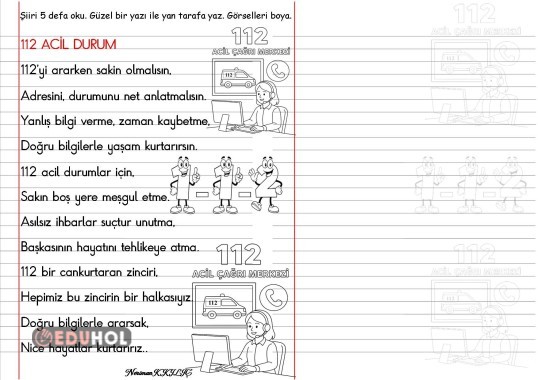 Şiiri 5 defa oku. Güzel bir yazı ile yan tarafa yaz. Görselleri boya.
112
ACİL ÇAĞRI MERKEZİ
112 ACİL DURUM
112'yi ararken sakin olmalısın,
112
Adresini, durumunu net anlatmalısın.
Yanlış bilgi verme, zaman kaybetme,
Doğru bilgilerle yaşam kurtarırsın.
112 acil durumlar için,
Sakın boş yere meşgul etme.
1-1-2
Asılsız ihbarlar suçtur unutma,
Başkasının hayatını tehlikeye atma.
112
ACİL ÇAĞRI MERKEZİ
112 bir cankurtaran zinciri,
Hepimiz bu zincirin bir halkasıyız.
112
Doğru bilgilerle ararsak,
EDUHOL
Nice hayatlar kurtarırız..
112
ACİL ÇAĞRI MERKEZİ
1-1-2
112
ACİL ÇAĞRI MERKEZİ